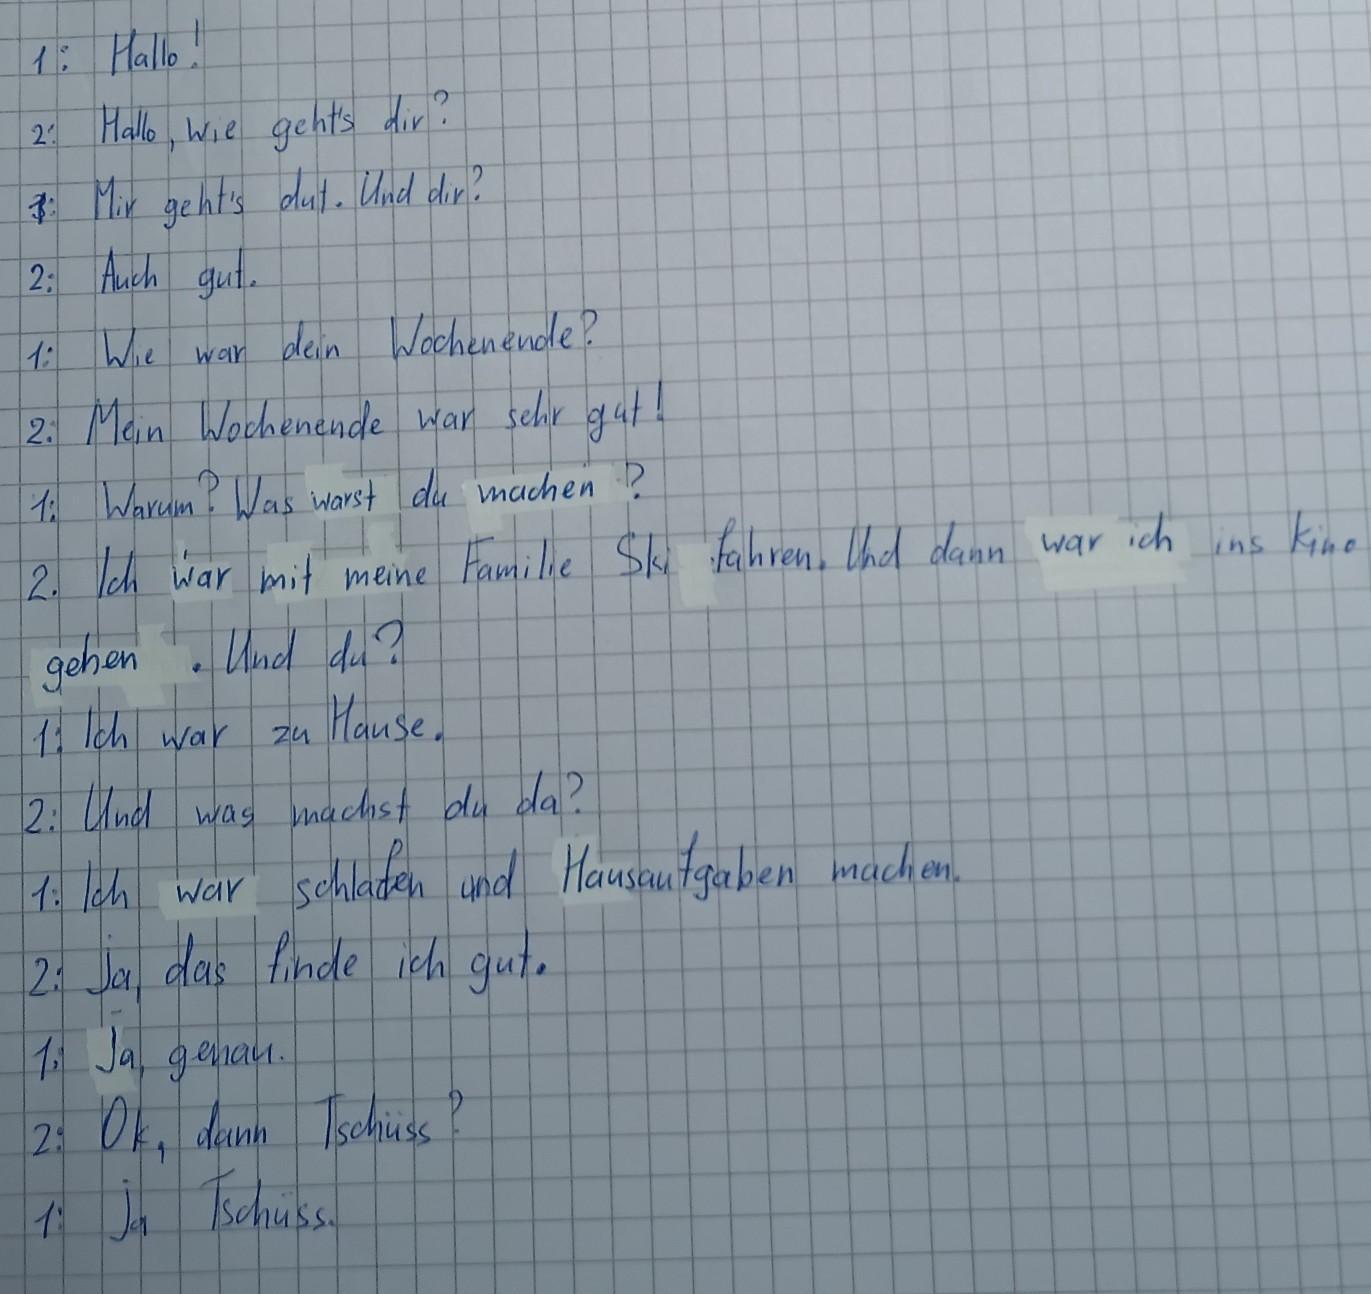 1: Hallo!
2: Hallo, wie geht's dir?
1: Mir geht's dut. Und dir?
2: Auch gut.
1: Wie war dein Wochenende?
2: Mein Wochenende war sehr gut!
1: Warum? Was warst du machen?
2. Ich war mit meine Familie Ski fahren. Und dann war ich ins Kino
gehen. Und du?
1: Ich war zu Hause.
2: Und was machst du da?
1: Ich war schlafen und Hausaufgaben machen.
2: Ja, das finde ich gut.
1: Ja, genau.
2: Ok, dann Tschüss?
1: Ja Tschüss.